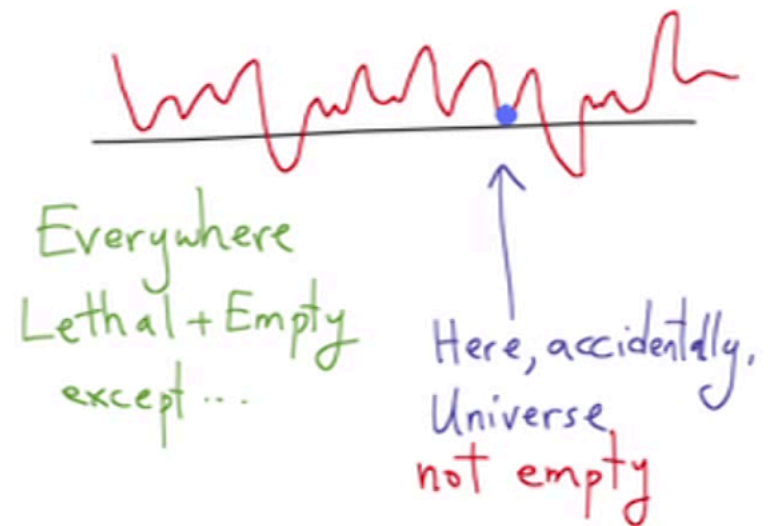 Everywhere
Lethal + Empty
except ...
Here, accidentally,
Universe
not empty